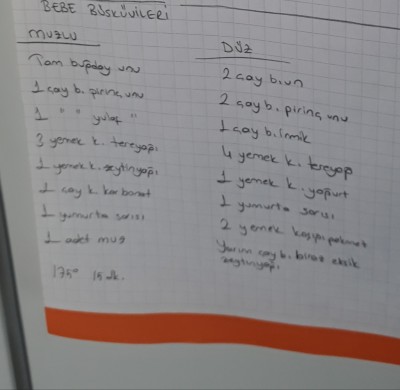 BEBE BÜSKÜVİLERİ
MUZLU
Tam buğday unu
1 çay b. pirinç unu
1 " " yulaf "
3 yemek k. tereyağı
1 yemek k. zeytinyağı
1 çay k. karbonat
1 yumurta sarısı
1 adet muz
175° 15 dk.
DÜZ
2 çay b. un
2 çay b. pirinç unu
1 çay b. irmik
4 yemek k. tereyağ
1 yemek k. yoğurt
1 yumurta sarısı
2 yemek k. pekmez
Yarım çay b. biraz eksik
zeytinyağı